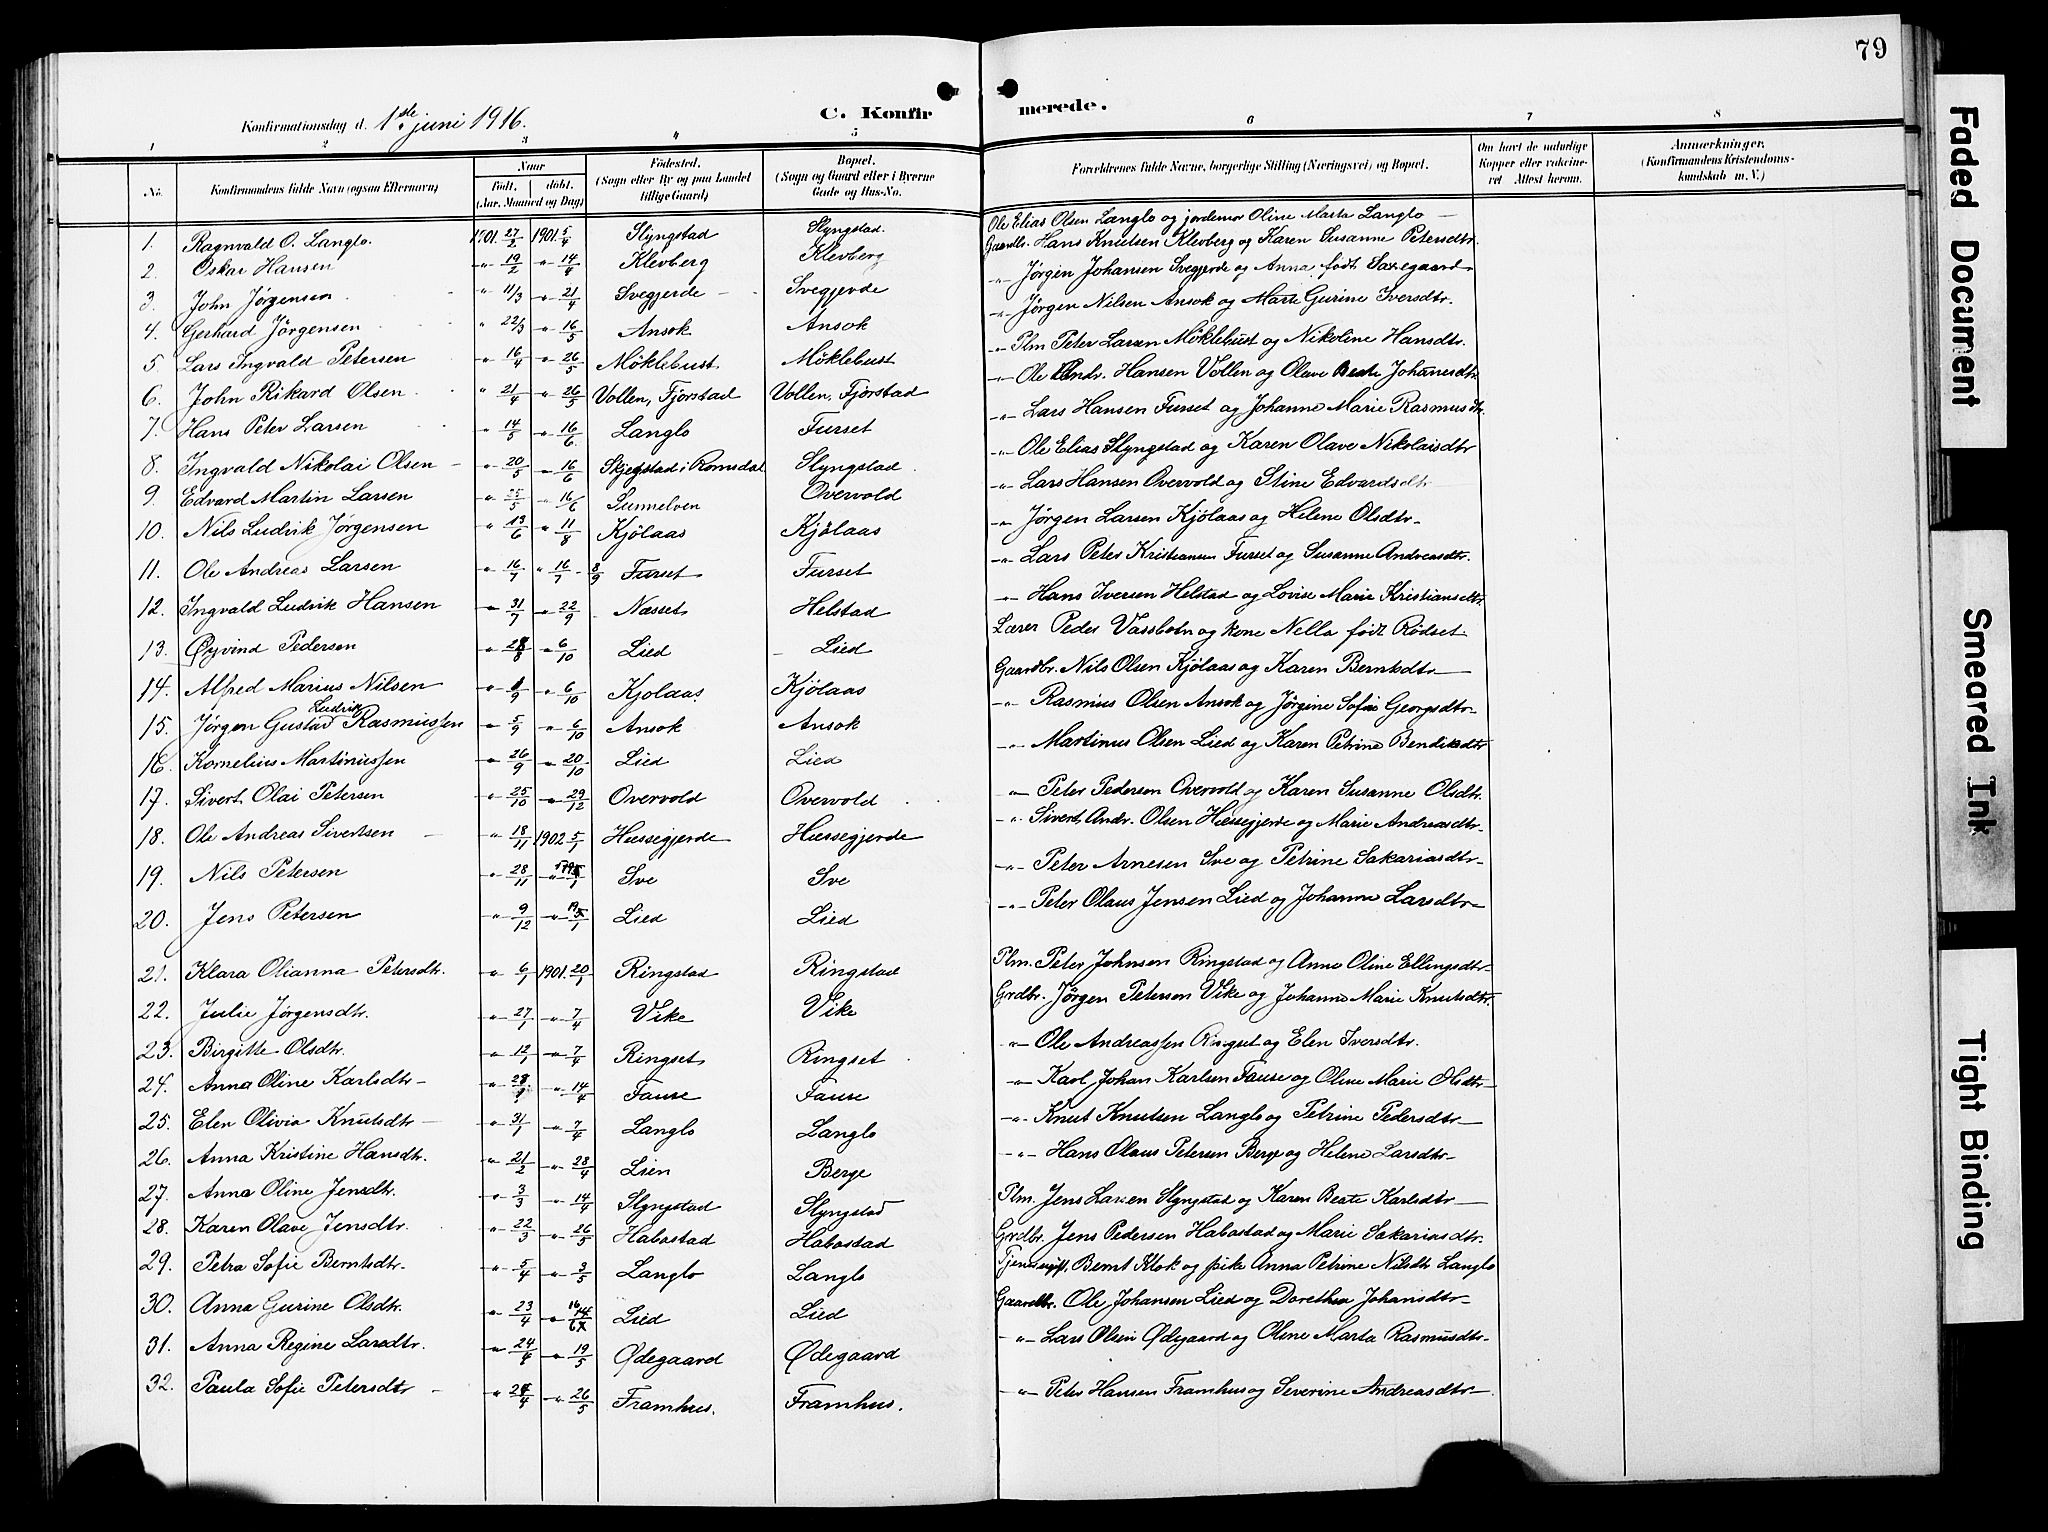 79
Konfirmationsdag d. 1ste juni 1916. C. Konfirmerede.
1 2 3 4 5 6 7 8
No. Konfirmandens fulde Navn (ogsaa Efternavn) Naar Født. døbt. (Aar, Maaned og Dag) Fødested. (Sogn eller By og paa Landet tillige Gaard) Bopæl. (Sogn og Gaard eller i Byerne Gade og Hus-No. Forældrenes fulde Navne, borgerlige Stilling (Næringsvei) og Bopæl. Om havt de naturlige Kopper eller vaksineret Attest herom. Anmærkninger. (Konfirmandens Kristendomskundskab m. V.)
1. Ragnvald O. Langlo. 1901 27/2 1901 5/4 Slyngstad Slyngstad. Ole Elias Olsen Langlo og jordemor Oline Marta Langlo
2. Oskar Hansen " 19/2 " 14/4 Klevberg Klevberg Gaardbr. Hans Knutsen Klevberg og Karen Susanne Petersdtr.
3. John Jørgensen " 11/3 " 21/4 Svegjerde Svegjerde " Jørgen Johansen Svegjerde og Anna, født Saxegaard
4. Gerhard Jørgensen " 22/3 " 16/5 Ansok Ansok " Jørgen Nilsen Ansok og Marte Gurine Iversdtr.
5. Lars Ingvald Petersen " 16/4 " 26/5 Møklebust Møklebust " Plm Peter Larsen Møklebust og Nikoline Hansdtr.
6. John Rikard Olsen " 21/4 " 26/5 Vollen, Fjørstad Vollen, Fjørstad " Ole Andr. Hansen Vollen og Olave Beate Johannesdtr
7. Hans Peter Larsen " 14/5 " 16/6 Langlo Furset " Lars Hansen Furset og Johanne Marie Rasmusdtr.
8. Ingvald Nikolai Olsen " 20/5 " 16/6 Skjegstad i Romsdal Slyngstad " Ole Elias Slyngstad og Karen Olave Nikolaisdtr
9. Edvard Martin Larsen " 25/5 " 16/6 Sunnelven Overvold " Lars Hansen Overvold og Stine Edvardsdtr
10. Nils Ludvik Jørgensen " 13/6 " 11/8 Kjølaas Kjølaas " Jørgen Larsen Kjølaas og Helene Olsdtr
11. Ole Andreas Larsen " 16/7 " 16/7 8/9 Furset Furset " Lars Peter Kristiansen Furset og Susanne Andreasdtr.
12. Ingvald Ludvik Hansen " 31/7 " 22/9 Næsset Helstad " Hans Iversen Helstad og Lovise Marie Kristiansdtr.
13. Øyvind Pedersen " 28/8 " 6/10 Lied Lied Lærer Peder Vassbotn og kone Nella født Rødset
14. Alfred Marius Nilsen " 1/9 " 6/10 Kjølaas Kjølaas Gaardbr. Nils Olsen Kjølaas og Karen Berntsdtr
15. Jørgen Gustav Ludvik Rasmussen " 5/9 " 6/10 Ansok Ansok " Rasmus Olsen Ansok og Jørgine Sofie Georgsdtr
16. Kornelius Martinussen " 26/9 " 20/10 Lied Lied " Martinus Olsen Lied og Karen Petrine Bendiksdtr
17. Sivert Olai Petersen " 25/10 " 29/12 Overvold Overvold " Peter Pedersen Overvold og Karen Susanne Olsdtr.
18. Ole Andreas Sivertsen " 18/11 1902 5/1 Hæssegjerde Hæssegjerde " Sivert Andr. Olsen Hæssegjerde og Marie Andreasdtr
19. Nils Petersen " 28/11 Sve Sve " Peter Arnesen Sve og Petrine Sakariasdtr
20. Jens Petersen " 9/12 Lied Lied " Peter Olaus Jensen Lied og Johanne Larsdtr
21. Klara Olianna Petersdtr. " 6/1 1901. 20/1 Ringstad Ringstad Plm. Peter Johnsen Ringstad og Anne Oline Ellingsdtr
22. Julie Jørgensdtr. " 27/1 " 7/4 Vike Vike Grdbr. Jørgen Petersen Vike og Johanne Marie Knutsdtr.
23. Birgitte Olsdtr. " 12/1 " 7/4 Ringset Ringset " Ole Andreassen Ringset og Elen Iversdtr.
24. Anna Oline Karlsdtr " 14/4 Fause Fause " Karl Johan Karlsen Fause og Oline Marie Olsdtr
25. Elen Olivia Knutsdtr " 31/1 " 7/4 Langlo Langlo " Knut Knutsen Langlo og Petrine Pedersdtr
26. Anna Kristine Hansdtr. " 21/2 " 28/4 Lien Berge " Hans Olaus Petersen Berge og Helene Larsdtr
27. Anna Oline Jensdtr. " 3/3 " 14/4 Slyngstad Slyngstad Plm. Jens Larsen Slyngstad og Karen Beate Karlsdtr
28. Karen Olave Jensdtr. " 22/3 " 26/5 Habostad Habostad Grdbr. Jens Pedersen Habostad og Marie Sakariasdtr.
29. Petra Sofie Berntsdtr. " 5/4 " 3/5 Langlo Langlo Bernt Klok og pike Anna Petrine Nilsdtr Langlo
30. Anna Gurine Olsdtr. " 23/4 " Lied Lied Gaardbr. Ole Johansen Lied og Dorethea Johansdtr
31. Anna Regine Larsdtr. " 24/4 " 19/5 Ødegaard Ødegaard " Lars Olsen Ødegaard og Oline Marta Rasmusdtr
32. Paula Sofie Petersdtr " 24/4 " 26/5 Framhus. Framhus. " Peter Hansen Framhus og Severine Andreasdtr
Faded Document
Smeared Ink
Tight Binding